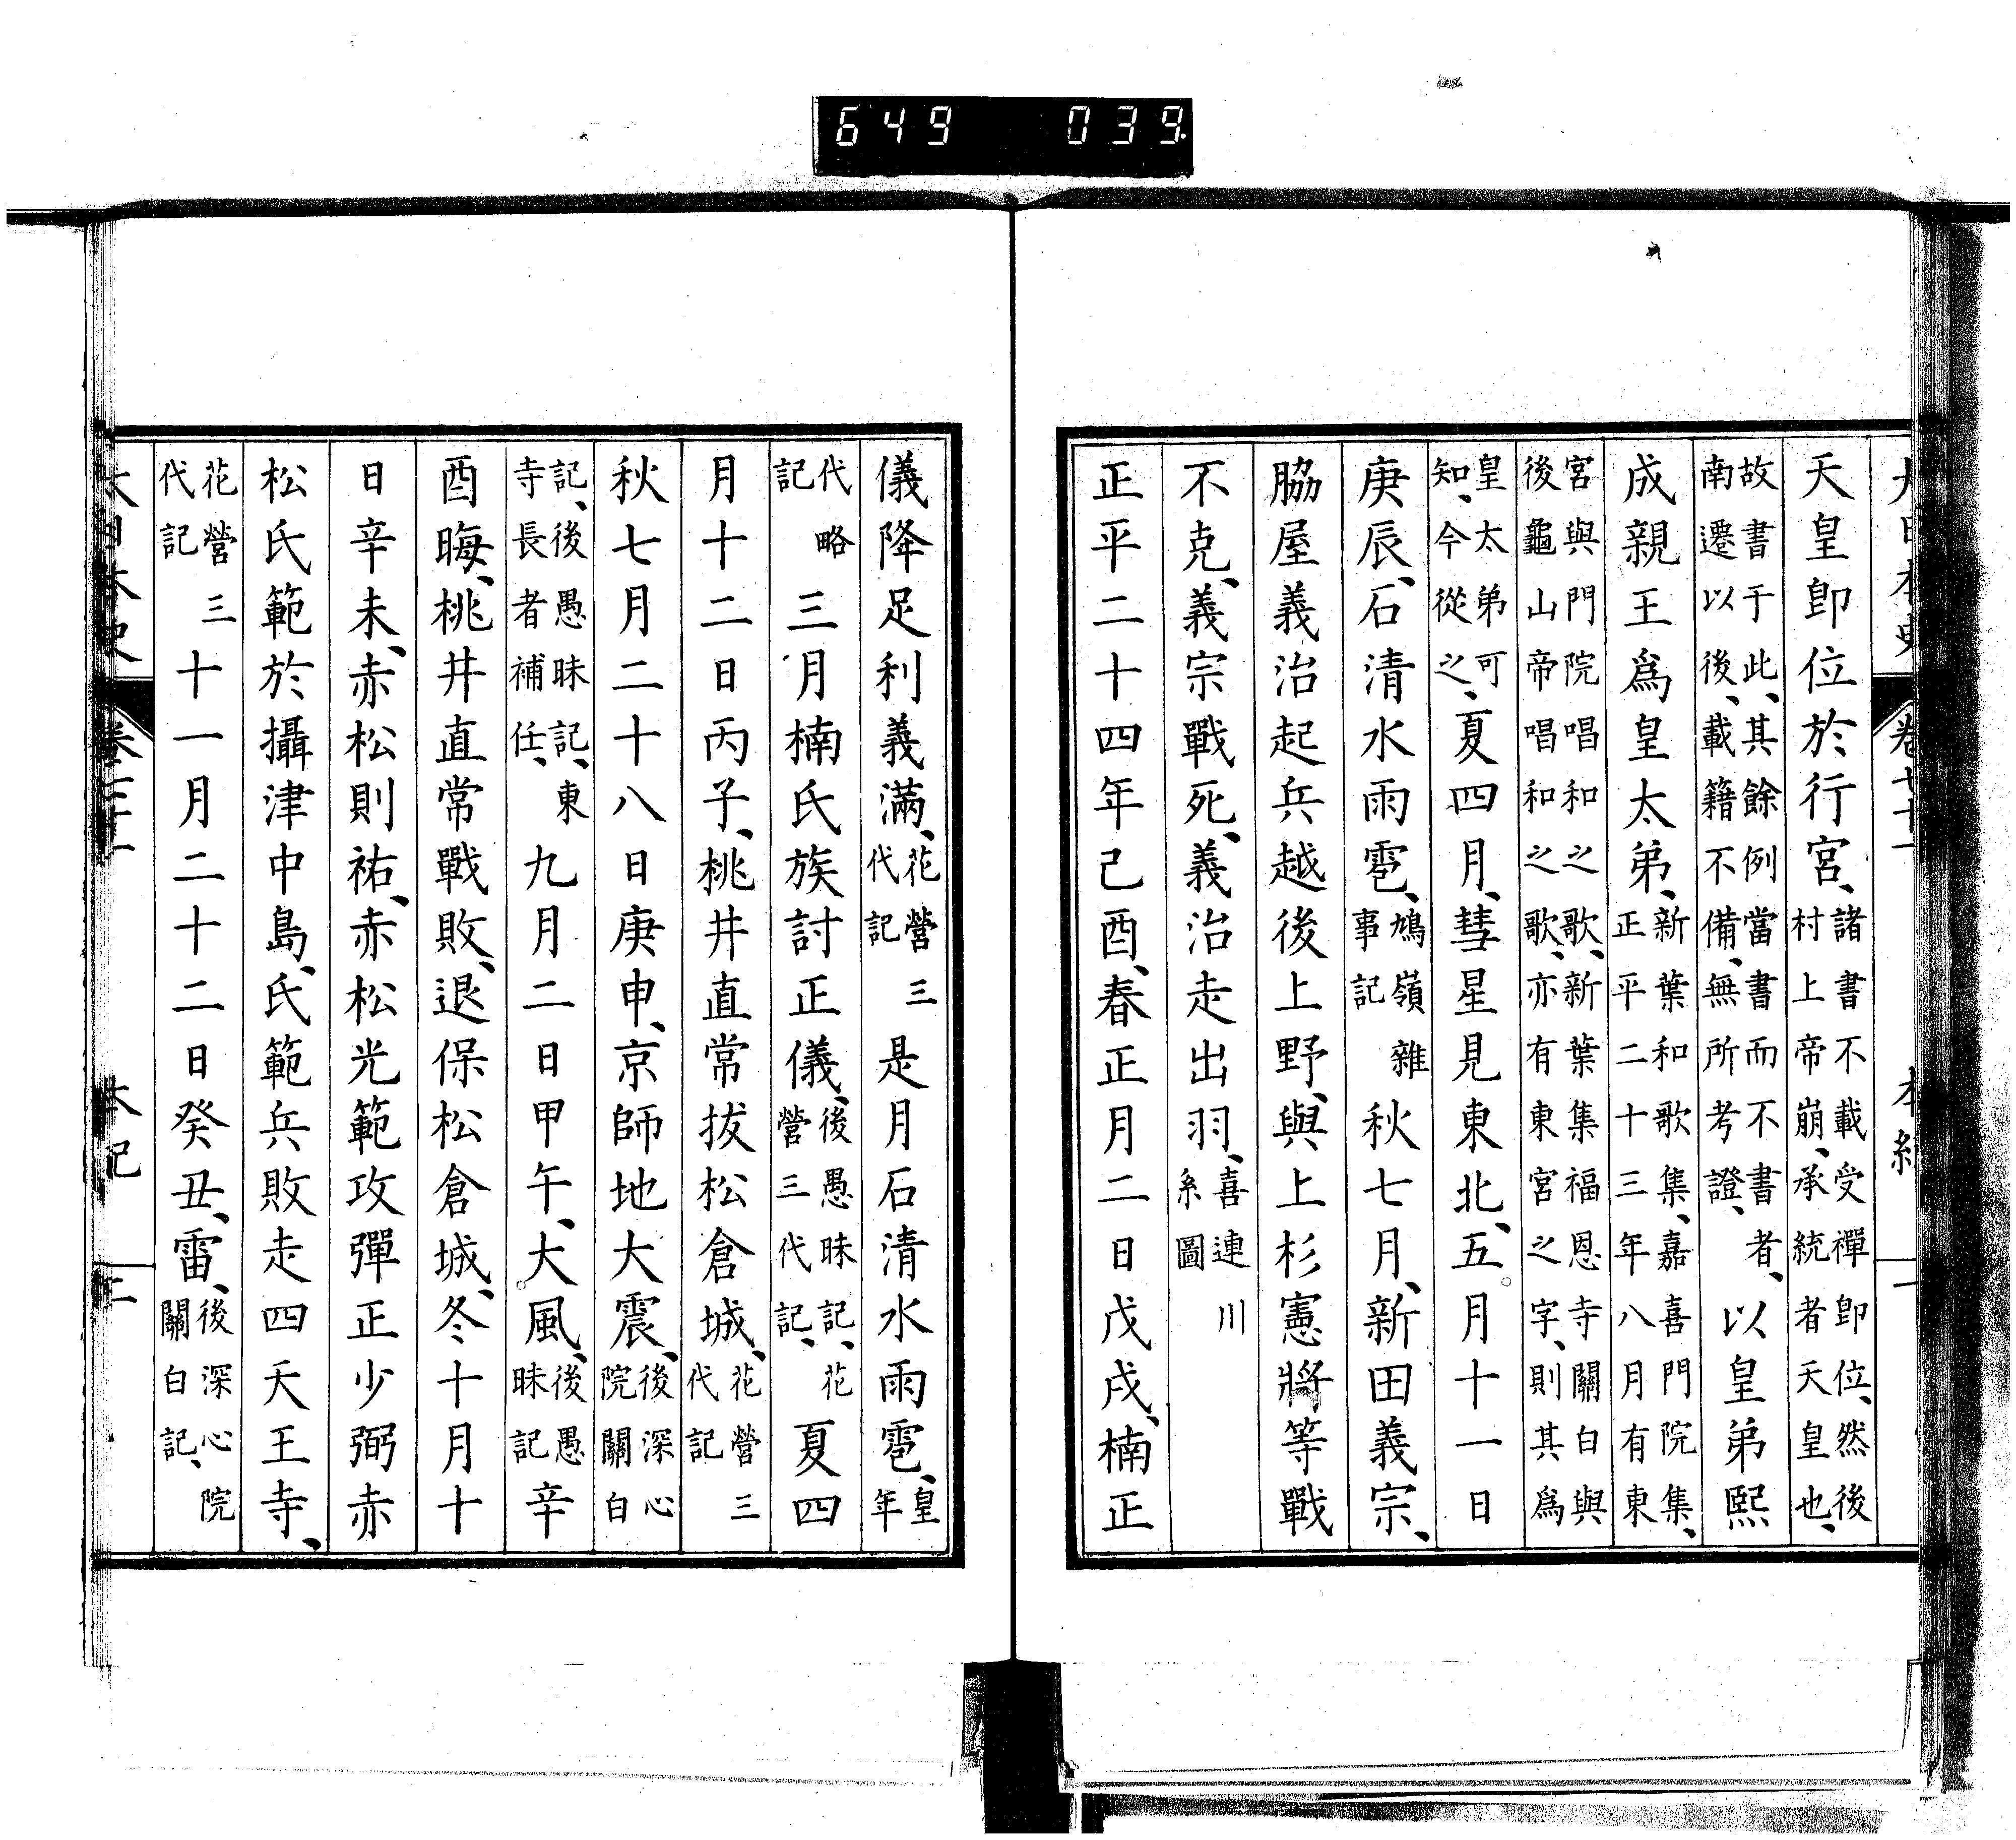 649 039
大日本史 卷七十一 本紀 一
天皇卽位於行宮、諸書不載受禪卽位、然後村上帝崩、承統者天皇也、
故書于此、其餘例當書而不書者、南遷以後、載籍不備、無所考證、以皇弟熙
成親王爲皇太弟、新葉和歌集、嘉喜門院集、正平二十三年八月有東
宮與門院唱和之歌、新葉集福恩寺關白與後龜山帝唱和之歌、亦有東宮之字、則其爲
皇太弟可知、今從之、夏四月、彗星見東北、五月十一日
庚辰、石清水雨雹、鳩嶺雜事記秋七月、新田義宗、
脇屋義治起兵越後上野、與上杉憲將等戰
不克、義宗戰死、義治走出羽、喜連川系圖
正平二十四年己酉、春正月二日戊戌、楠正
儀降足利義滿、花營三代記是月石清水雨雹、皇年
代略記三月楠氏族討正儀、後愚昧記、花營三代記、夏四
月十二日丙子、桃井直常拔松倉城、花營三代記
秋七月二十八日庚申、京師地大震、後深心院關白
記、後愚昧記、東寺長者補任、九月二日甲午、大風、後愚昧記辛
酉晦、桃井直常戰敗、退保松倉城、冬十月十
日辛未、赤松則祐、赤松光範攻彈正少弼赤
松氏範於攝津中島、氏範兵敗走四天王寺、
花營三代記十一月二十二日癸丑、雷、後深心院關白記、
大日本史 卷七十一 本紀 二